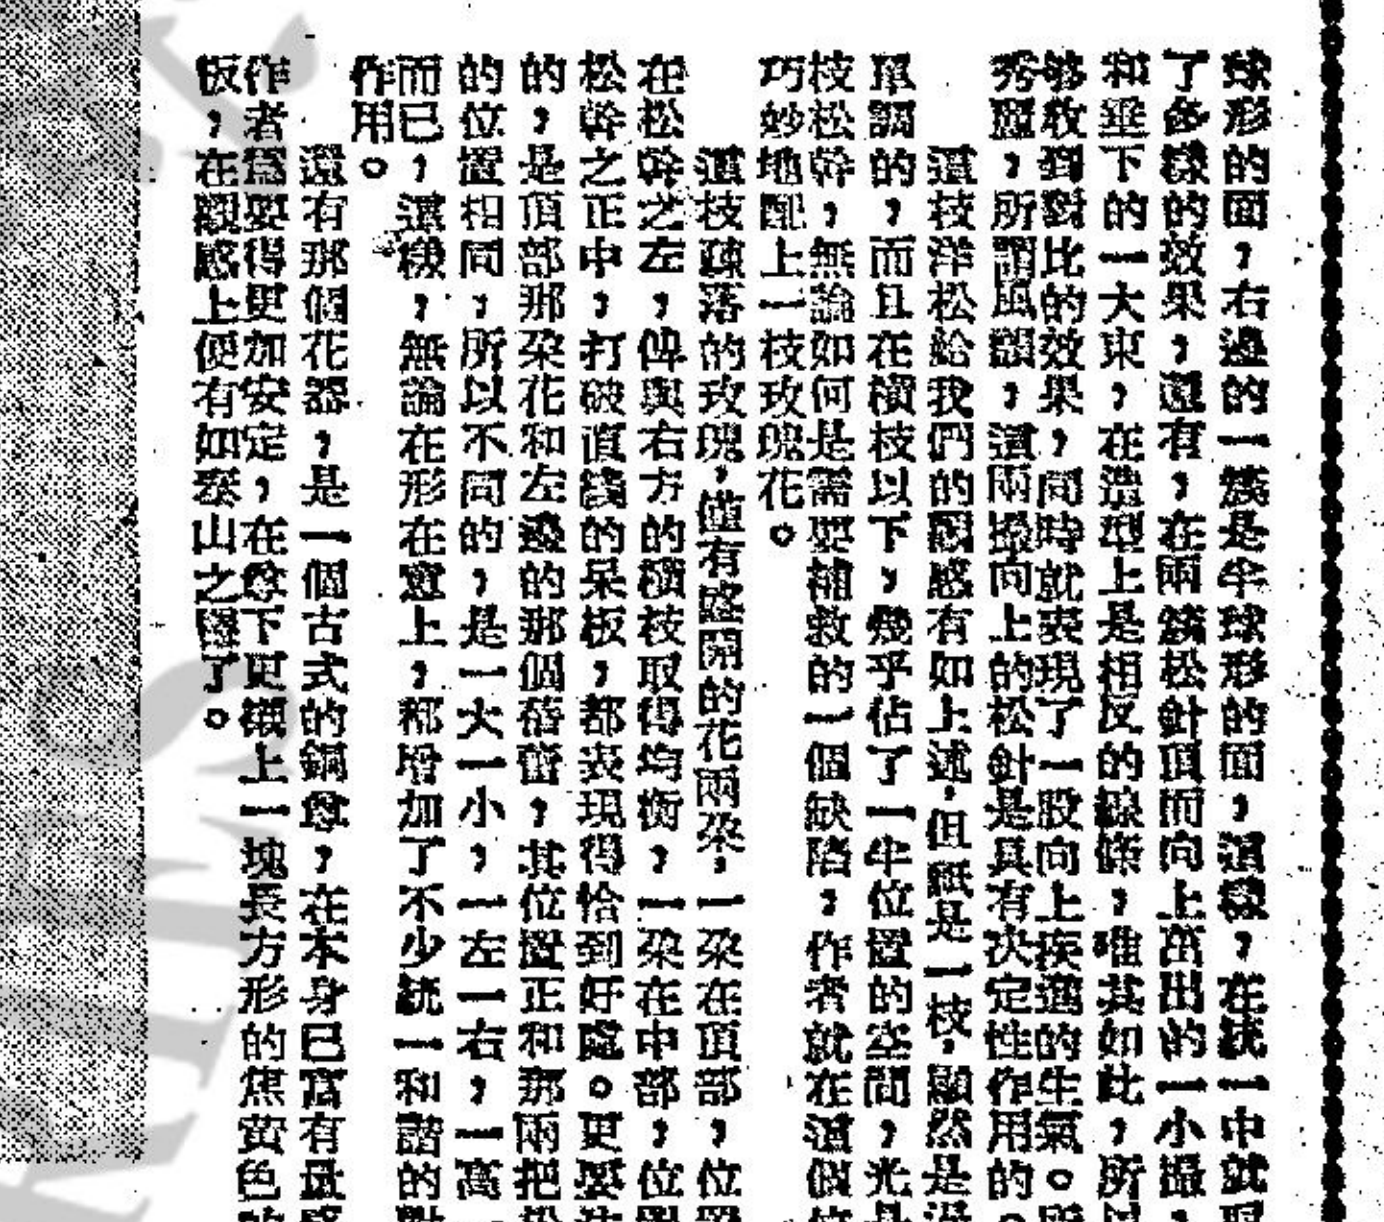 球形的面，右邊的一簇是半球形的面，這樣，在統一中就
了多樣的效果，還有，在兩簇松針頂而向上茁出的一小撮，
和垂下的一大束，在造型上是相反的線條，唯其如此，所
够收到對比的效果，同時就表現了一股向上疾進的生氣。所
秀麗，所謂風韻，這兩撮向上的松針是具有決定性作用的。
這枝洋松給我們的觀感有如上述，但祇是一枝，顯然是
單調的，而且在橫枝以下，幾乎佔了一半位置的空間，光是
枝松幹，無論如何是需要補救的一個缺陷，作者就在這個位
巧妙地配上一枝玫瑰花。
這枝疎落的玫瑰，僅有盛開的花兩朶，一朶在頂部，位置
在松幹之左，俾與右方的橫枝取得均衡，一朶在中部，位置
松幹之正中，打破直綫的呆板，都表現得恰到好處。更要注
的，是頂部那朶花和左邊的那個蓓蕾，其位置正和那兩把松
的位置相同，所以不同的，是一大一小，一左一右，一高一
而已，這樣，無論在形在意上，都增加了不少統一和諧的
作用。
還有那個花器，是一個古式的銅尊，在本身已富有
作者爲要得更加安定，在尊下更襯上一塊長方形的焦黄色的
板，在觀感上便有如泰山之穩了。